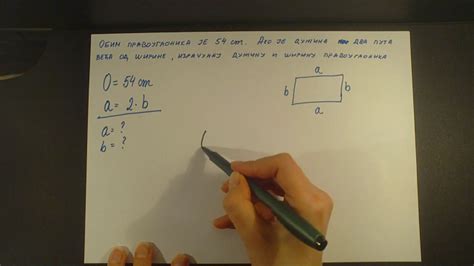 Обим правоугаоника је 54 cm. Ако је дужина два пута
већа од ширине, израчунај дужину и ширину правоугаоника.
O = 54 cm
a = 2 · b
a = ?
b = ?
a
b b
a